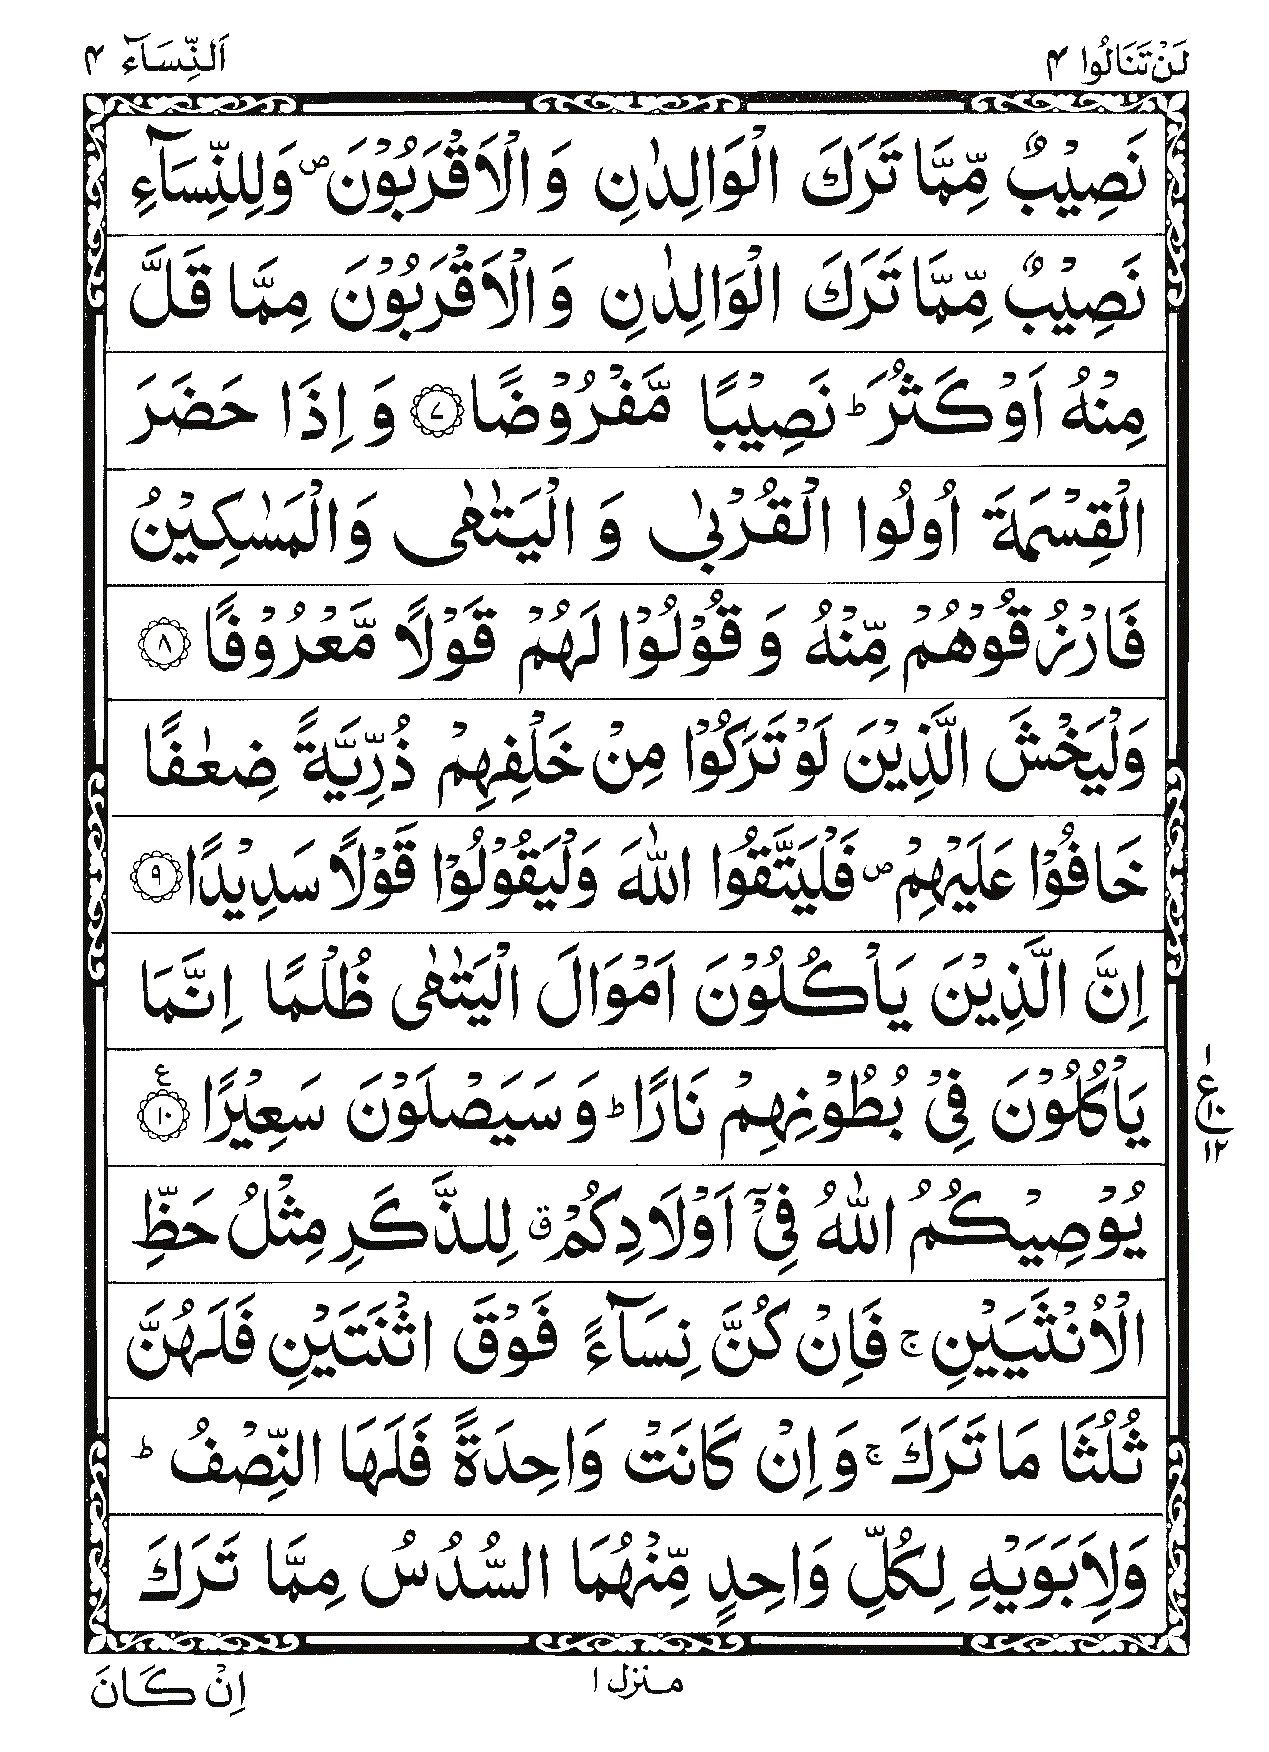 لَنْ تَنَالُوا ۴
اَلنِّسَآء ۴
نَصِيْبٌ مِّمَّا تَرَكَ الْوَالِدٰنِ وَ الْاَقْرَبُوْنَ ۪ وَلِلنِّسَآءِ
نَصِيْبٌ مِّمَّا تَرَكَ الْوَالِدٰنِ وَ الْاَقْرَبُوْنَ مِمَّا قَلَّ
مِنْهُ اَوْ كَثُرَ ؕ نَصِيْبًا مَّفْرُوْضًا ۷ وَ اِذَا حَضَرَ
الْقِسْمَةَ اُولُوا الْقُرْبٰى وَ الْيَتٰمٰى وَ الْمَسٰكِيْنُ
فَارْزُقُوْهُمْ مِّنْهُ وَ قُوْلُوْا لَهُمْ قَوْلًا مَّعْرُوْفًا ۸
وَلْيَخْشَ الَّذِيْنَ لَوْ تَرَكُوْا مِنْ خَلْفِهِمْ ذُرِّيَّةً ضِعٰفًا
خَافُوْا عَلَيْهِمْ ۪ فَلْيَتَّقُوا اللّٰهَ وَلْيَقُوْلُوْا قَوْلًا سَدِيْدًا ۹
اِنَّ الَّذِيْنَ يَاْكُلُوْنَ اَمْوَالَ الْيَتٰمٰى ظُلْمًا اِنَّمَا
يَاْكُلُوْنَ فِيْ بُطُوْنِهِمْ نَارًا ؕ وَ سَيَصْلَوْنَ سَعِيْرًا ۱۰ ع
۱
ع ۱۰
۱۲
يُوْصِيْكُمُ اللّٰهُ فِيْۤ اَوْلَادِكُمْ ۗ لِلذَّكَرِ مِثْلُ حَظِّ
الْاُنْثَيَيْنِ ۚ فَاِنْ كُنَّ نِسَآءً فَوْقَ اثْنَتَيْنِ فَلَهُنَّ
ثُلُثَا مَا تَرَكَ ۚ وَ اِنْ كَانَتْ وَاحِدَةً فَلَهَا النِّصْفُ ؕ
وَلِاَبَوَيْهِ لِكُلِّ وَاحِدٍ مِّنْهُمَا السُّدُسُ مِمَّا تَرَكَ
منزل ۱
اِنْ كَانَ